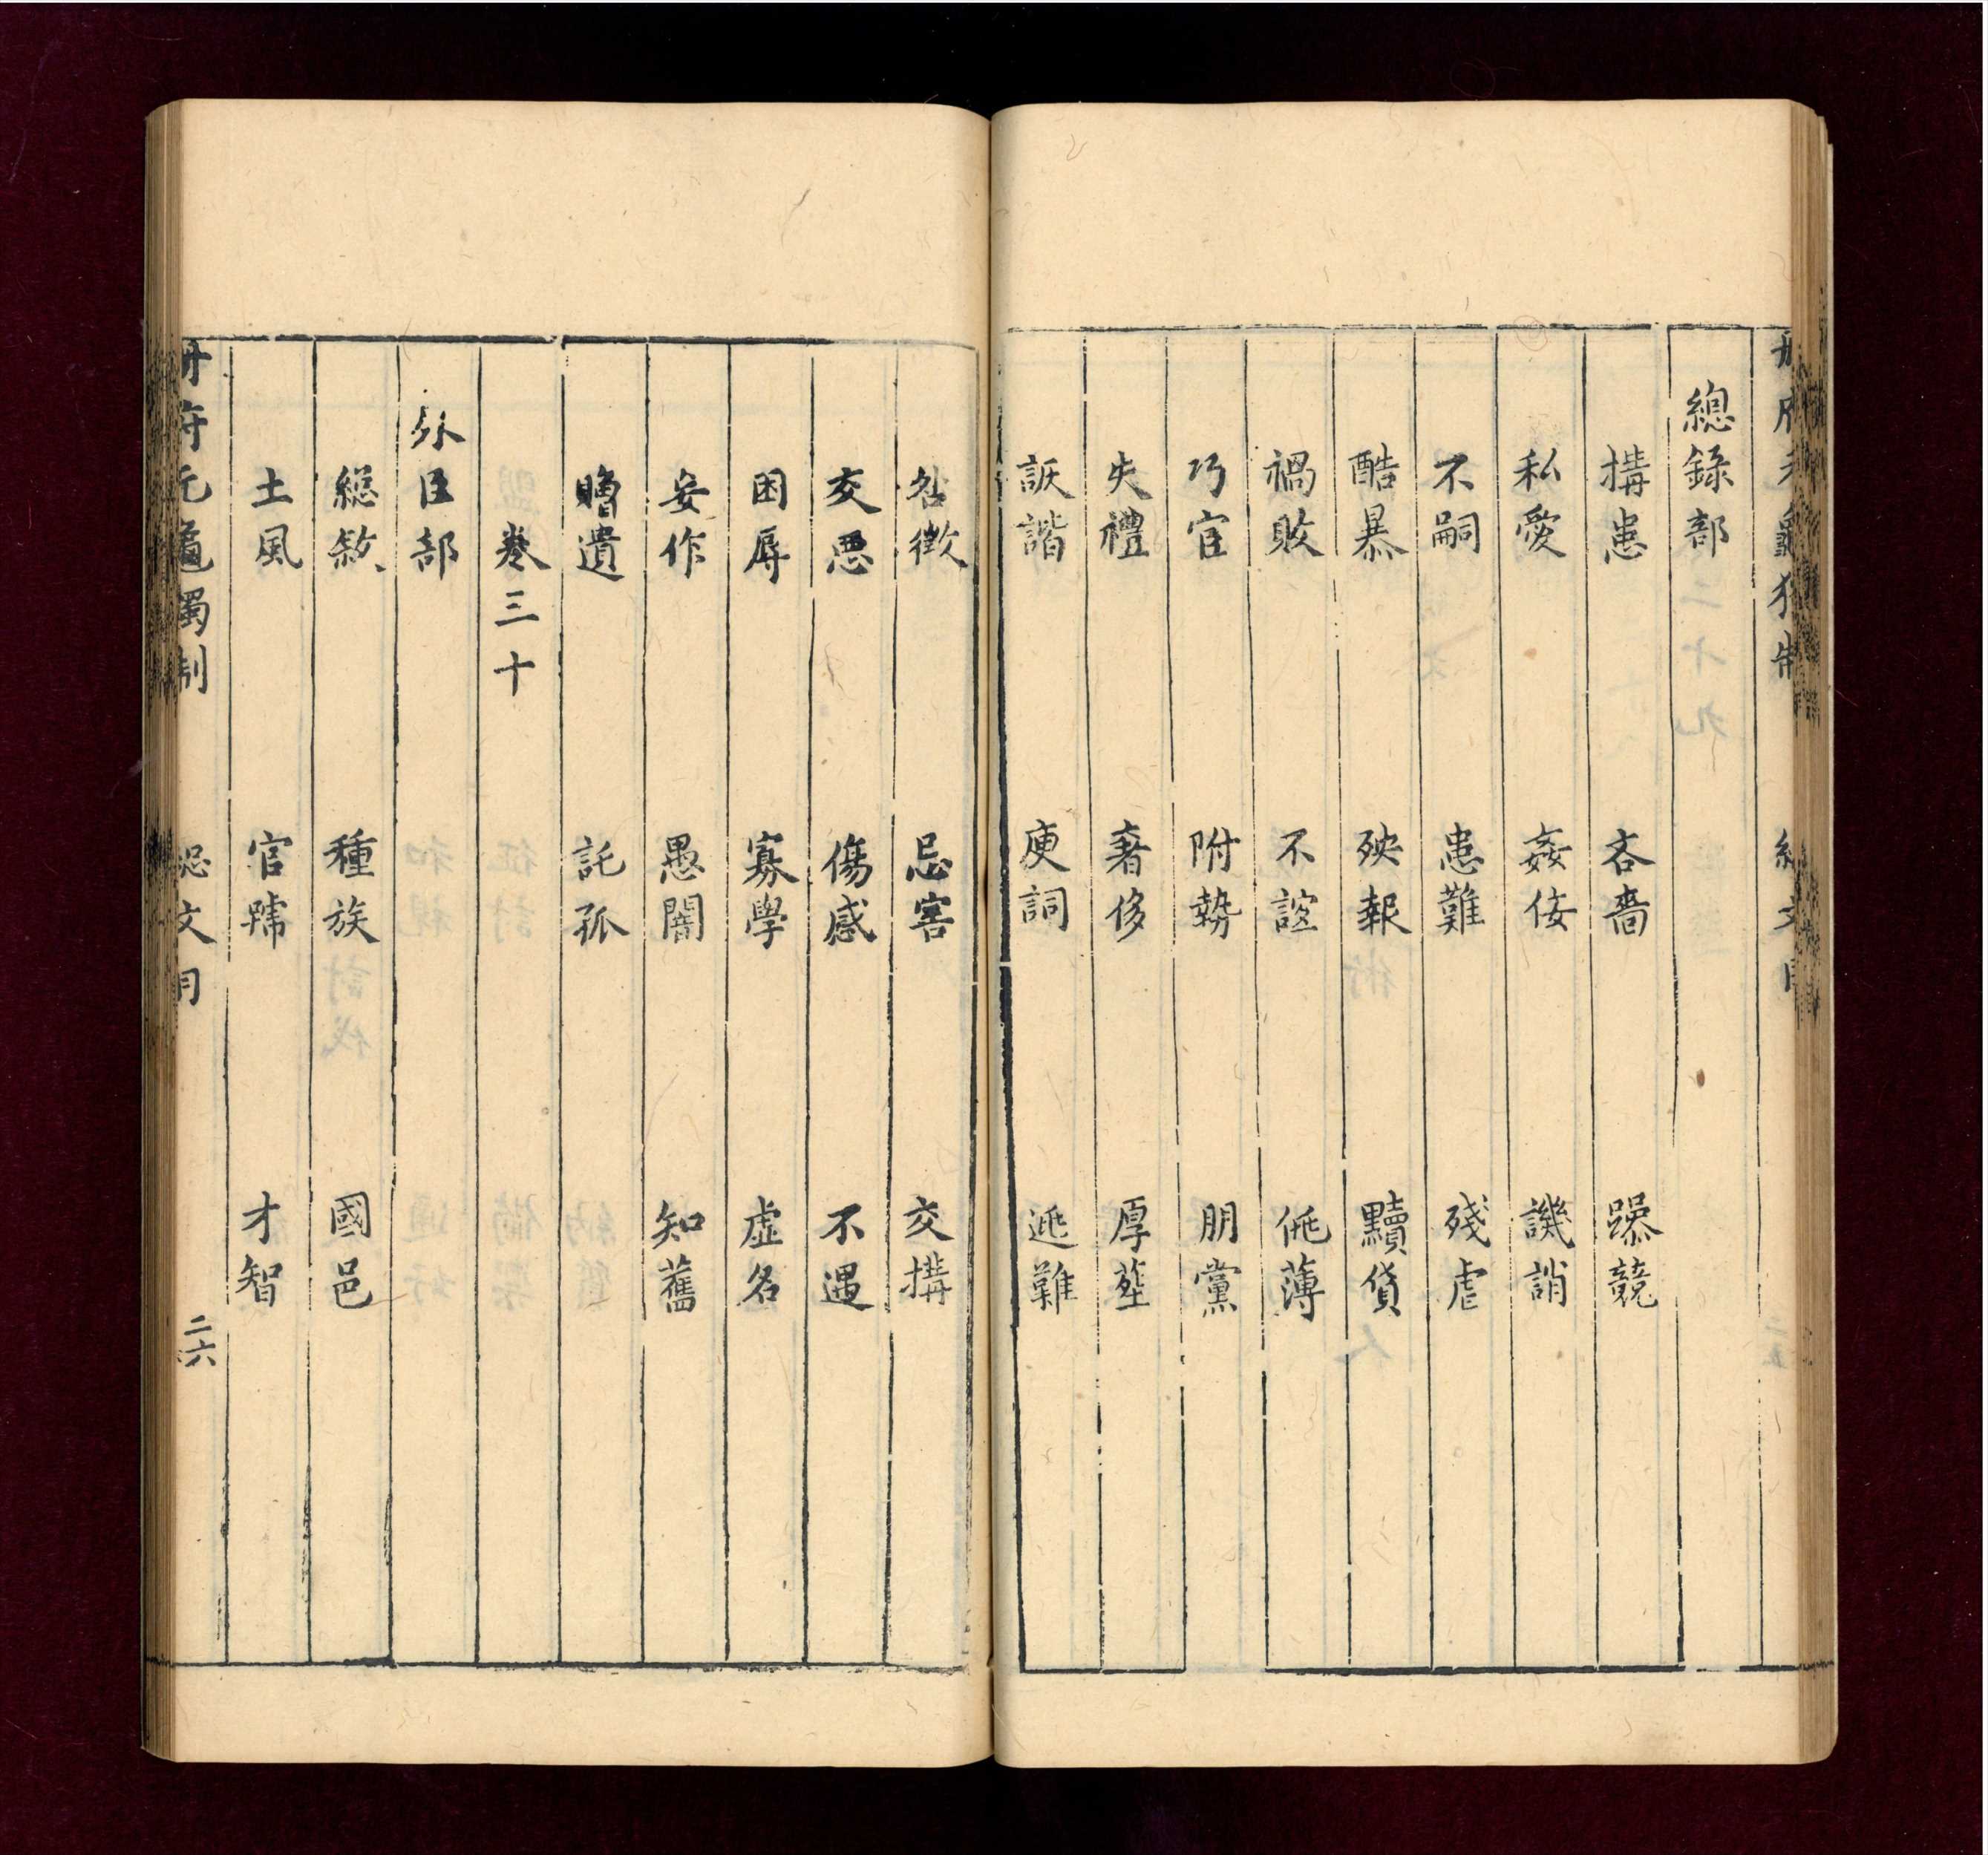 總錄部
搆患 吝嗇 躁競
私愛 姦佞 譏誚
不嗣 患難 殘虐
酷暴 殃報 黷貨
禍敗 不誼 佻薄
巧宦 附勢 朋黨
失禮 奢侈 厚塟
詼諧 庾詞 逃難
咎徵 忌害 交搆
交惡 傷感 不遇
困辱 寡學 虛名
妄作 愚闇 知舊
贍遺 託孤
卷三十
外臣部
總敘 種族 國邑
土風 官號 才智
册府元龜獨制 總文目 二六